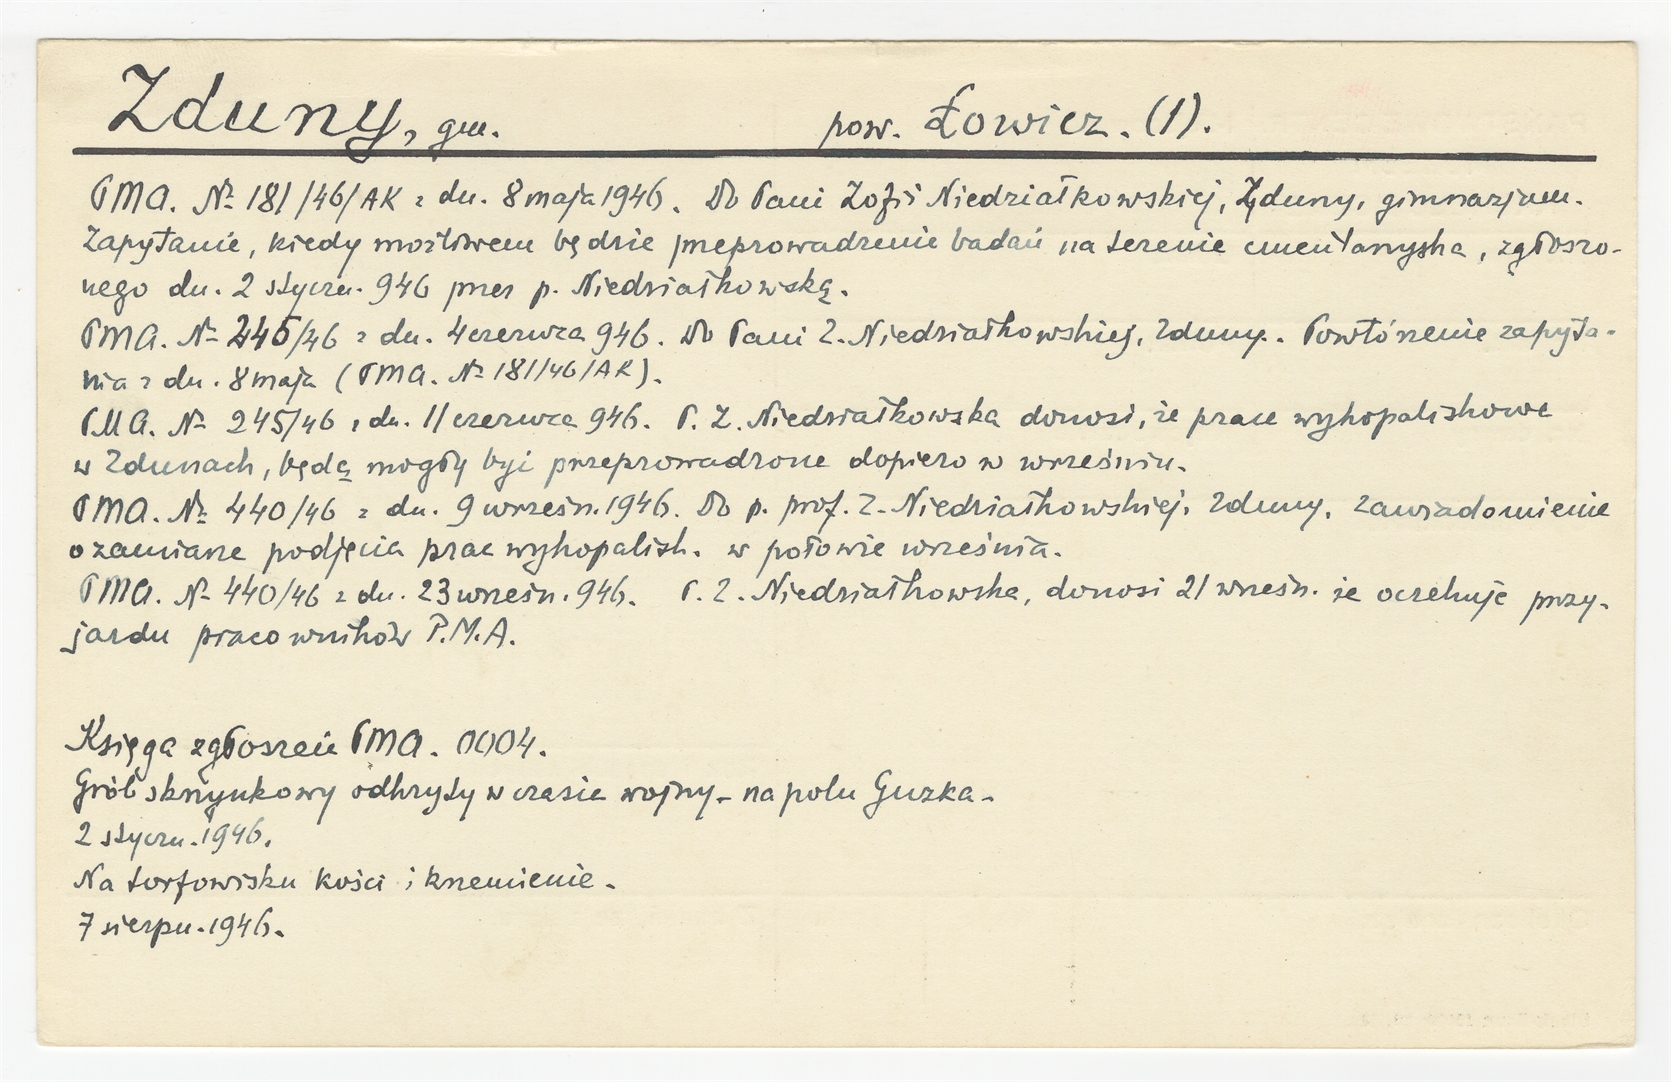 Zduny, gm. pow. Łowicz. (1).
PMA. № 181/46/AK z dn. 8 maja 1946. Do Pani Zofii Niedziałkowskiej, Zduny, gimnazjum.
Zapytanie, kiedy możliwem będzie przeprowadzenie badań na terenie cmentarzyska, zgłoszo-
nego dn. 2 styczn. 946 przez p. Niedziałkowską.
PMA. № 245/46 z dn. 4 czerwca 946. Do Pani Z. Niedziałkowskiej, Zduny. Powtórzenie zapyta-
nia z dn. 8 maja (PMA. № 181/46/AK).
PMA. № 245/46 z dn. 11 czerwca 946. P. Z. Niedziałkowska donosi, że prace wykopaliskowe
w Zdunach, będą mogły być przeprowadzone dopiero w wrześniu.
PMA. № 440/46 z dn. 9 wrześn. 1946. Do p. prof. Z. Niedziałkowskiej, Zduny, zawiadomienie
o zamiarze podjęcia prac wykopalisk. w połowie września.
PMA. № 440/46 z dn. 23 wrześn. 946. P. Z. Niedziałkowska, donosi 21 wrześn. że oczekuje przy-
jazdu pracowników P.M.A.
Księga zgłoszeń PMA. 0004.
Grób skrzynkowy odkryty w czasie wojny - na polu Guzka -
2 styczn. 1946.
Na torfowisku kości i krzemienie.
7 sierpn. 1946.